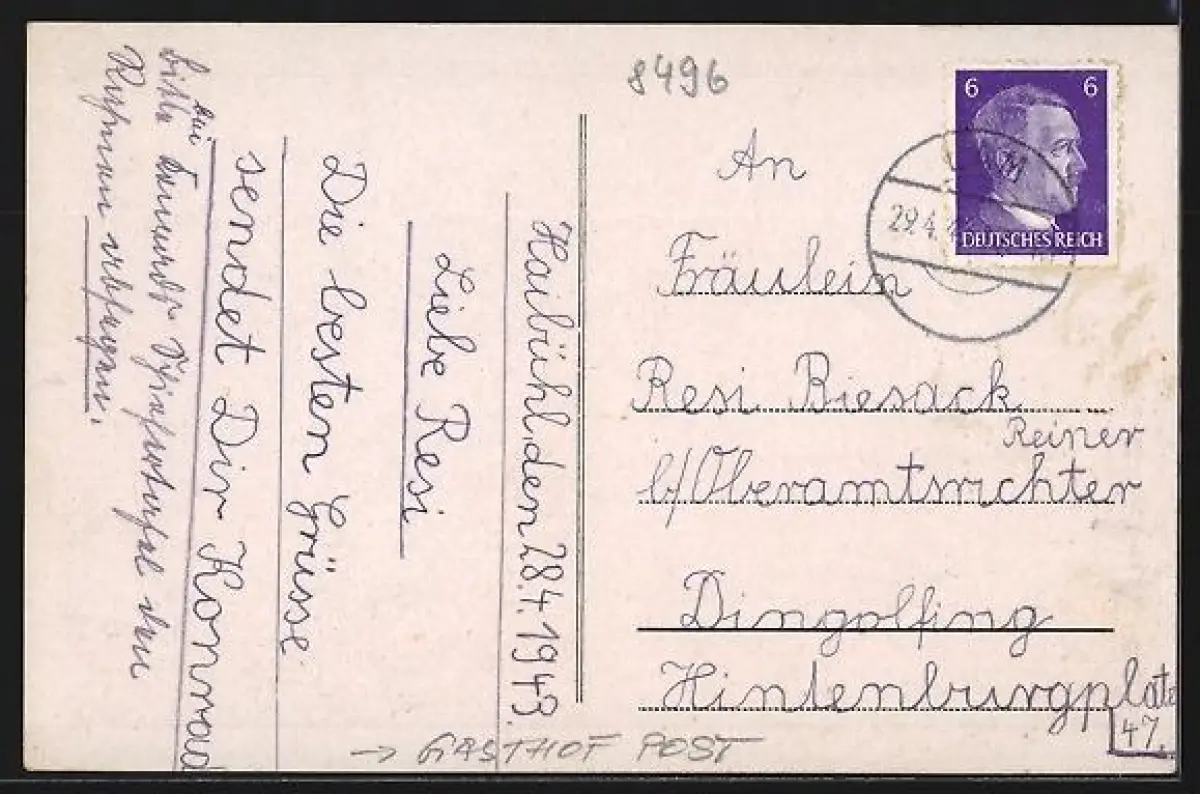 8496
6 6
DEUTSCHES REICH
29.4.
An
Fräulein
Resi Biesack
Reiner
b/Oberamtsrichter
Dingolfing
Hintenburgplatz
47.
Haibühl, den 28.4.1943.
Liebe Resi
Die besten Grüsse
sendet Dir Konrad
bitte
→ GASTHOF POST